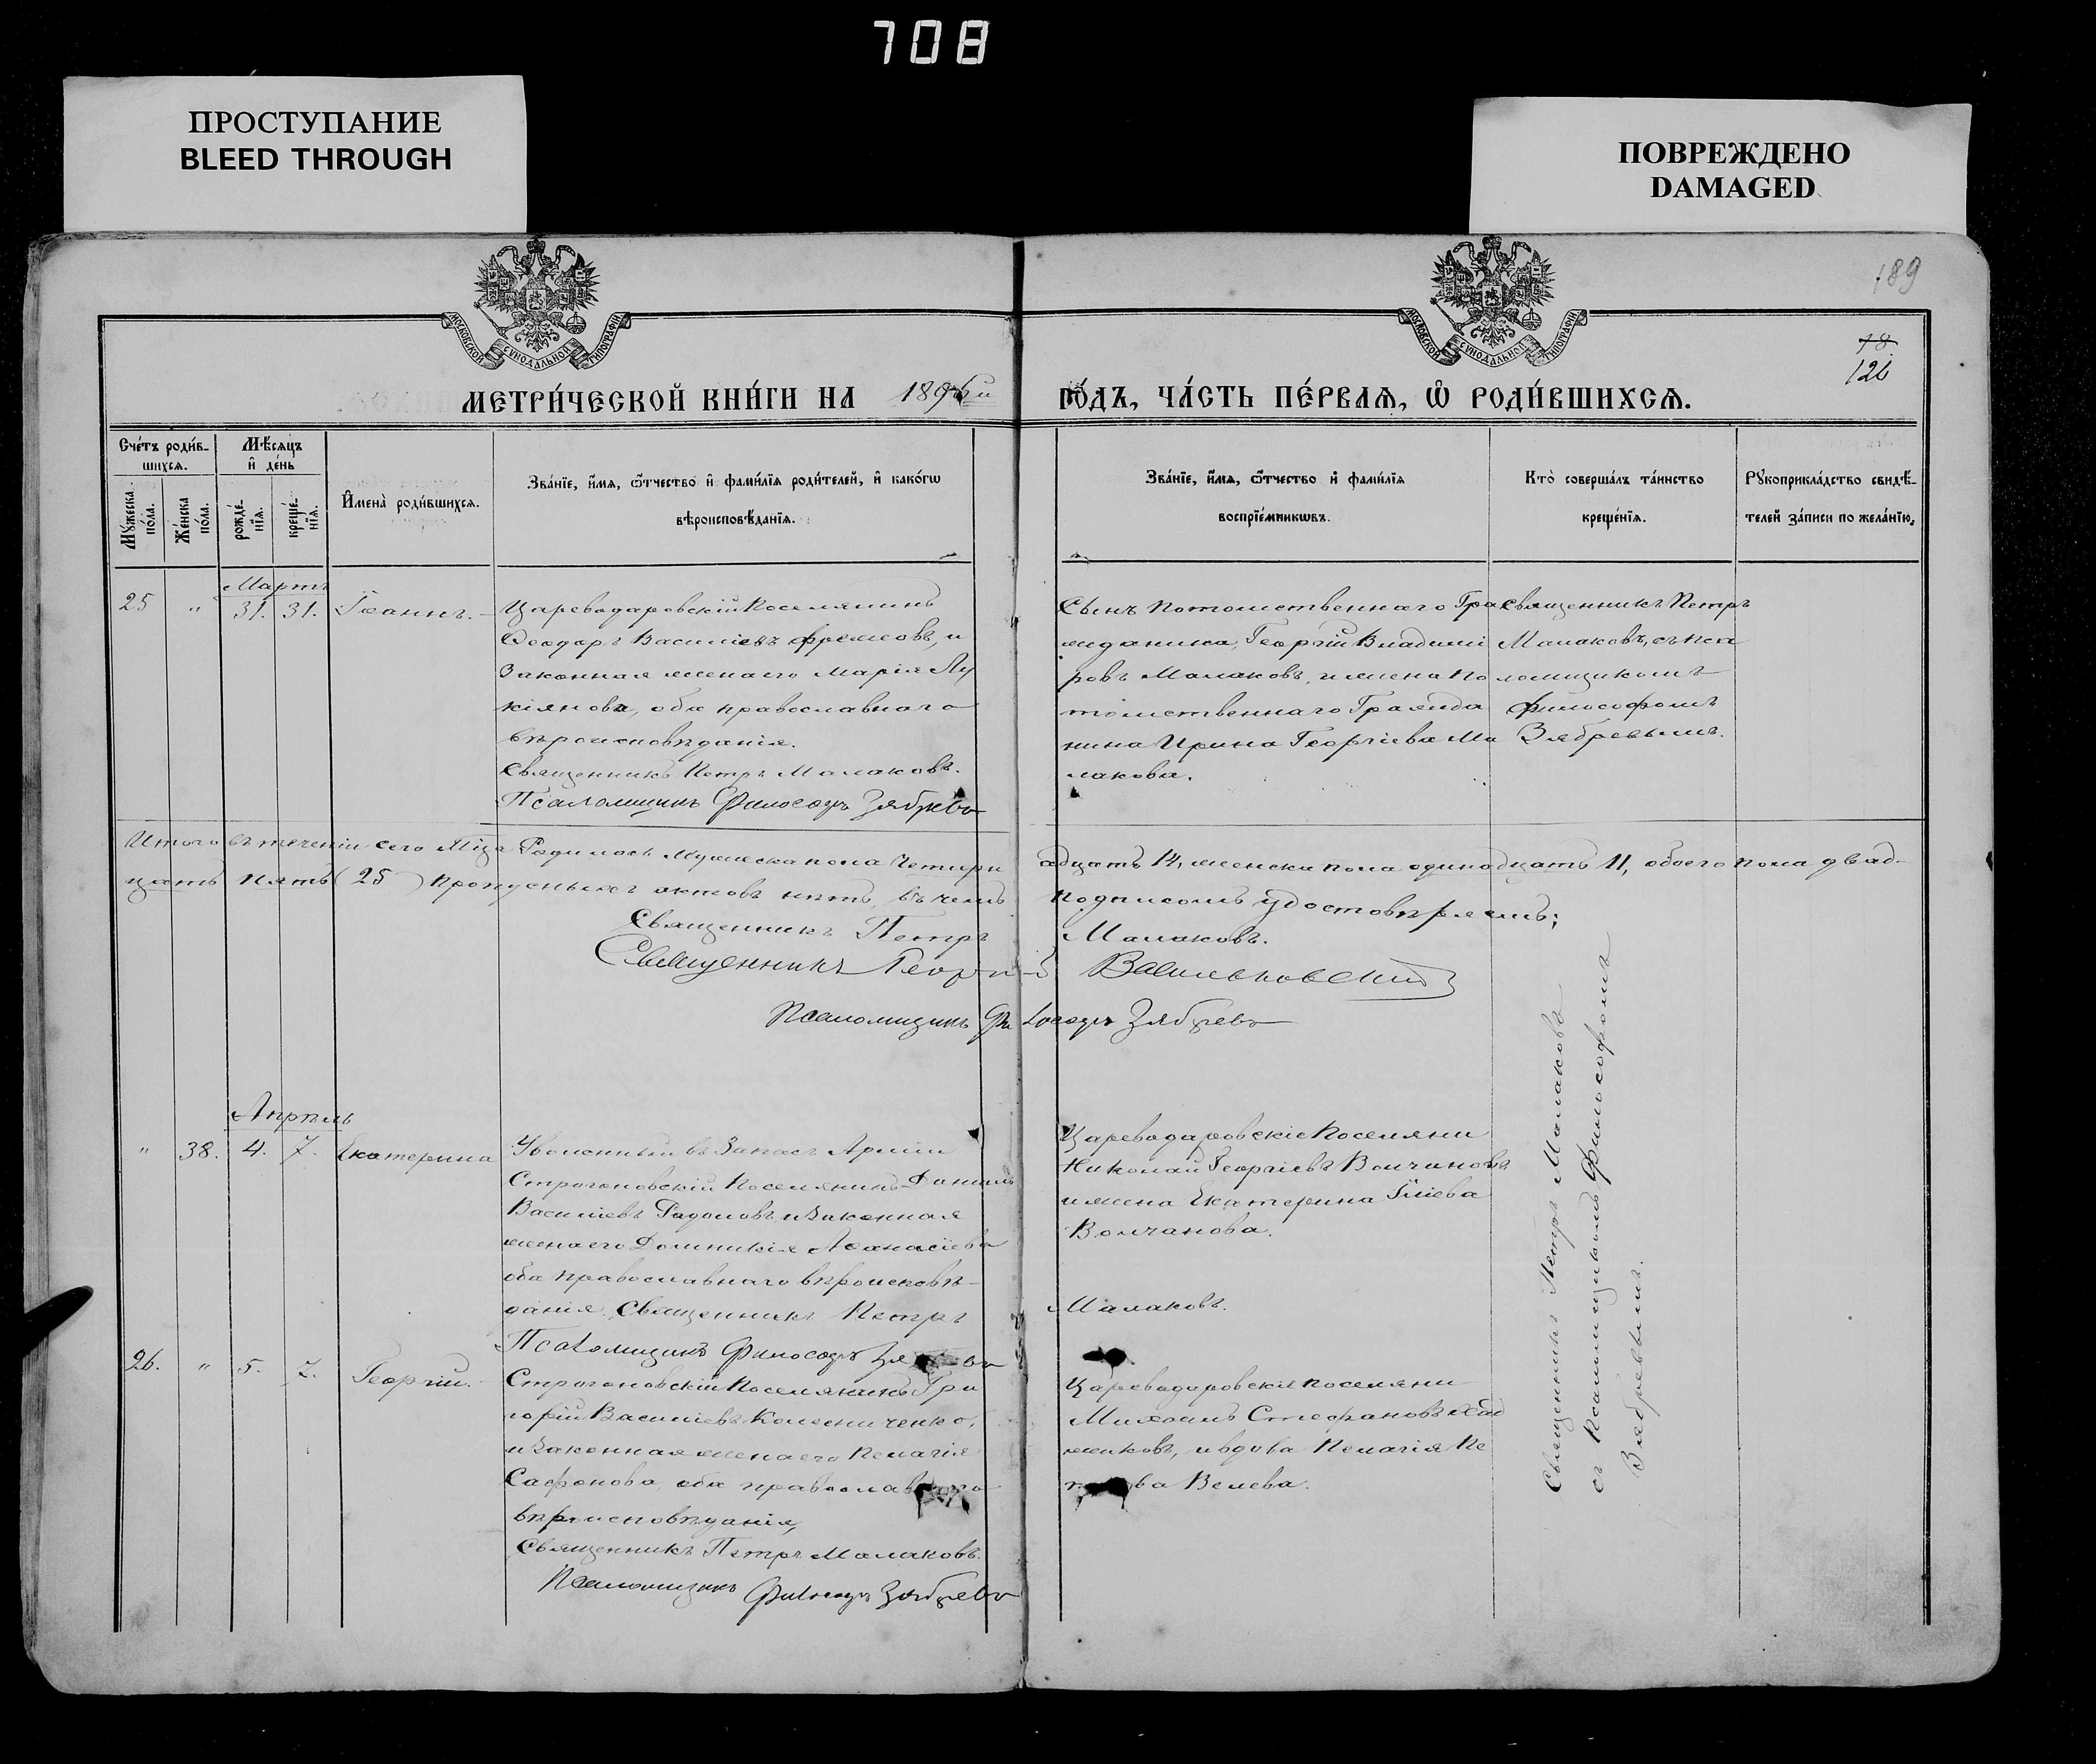 708
ПРОСТУПАНИЕ
BLEED THROUGH
ПОВРЕЖДЕНО
DAMAGED
189
МОСКОВСКОЙ СУНОДАЛЬНОЙ ТИПОГРАФІИ
МОСКОВСКОЙ СУНОДАЛЬНОЙ ТИПОГРАФІИ
78
126
МЕТРИ́ЧЕСКОЙ КНИ́ГИ НА 1896й
ГО́ДЪ, ЧА́СТЬ ПЕ́РВАѦ, Ѡ҆ РОДИ́ВШИХСѦ.
Сче́тъ роди́в-
шихсѧ.
Мꙋ́жеска по́ла.
Же́нска по́ла.
Мѣ́сѧцъ
и҆ де́нь
рожде́-нїѧ.
креще́-нїѧ.
И҆мена̀ роди́вшихсѧ.
Зва́нїе, и҆́мѧ, ѻ҆́тчество и҆ фами́лїѧ роди́телей, и҆ како́гѡ
вѣроисповѣ́данїѧ.
Зва́нїе, и҆́мѧ, ѻ҆́тчество и҆ фами́лїѧ
воспрїе́мникѡвъ.
Кто̀ соверша́лъ та́инство
креще́нїѧ.
Рꙋкоприкла́дство свидѣ́-
телей за́писи по жела́нїю.
Мартъ
25 " 31. 31. Іоаннъ.
Цареводаровскій Поселянинъ
Ѳеодоръ Васильевъ и
Законная жена его Марія Лу
кіянова, оба православнаго
вѣроисповѣданія.
Священникъ Петръ Малаковъ.
Псаломщикъ Философъ Зябревъ
Сынъ Потомственнаго Гра
жданина, Георгій Владими
ровъ Малаковъ, и жена По
томственнаго Гражда
нина Ирина Георгіева Ма
лакова.
Священникъ Петръ
Малаковъ, съ Пса
ломщикомъ
Философомъ
Зябревымъ.
Итого въ теченіи сего М-ца Родилось Мужеска пола Четырн
адцать 14, женска пола одинадцать 11, обоего пола двад-
цать пять (25) пропусныхъ актовъ нѣтъ, въ чемъ
подписомъ удостовѣряемъ:
Священникъ Петръ Малаковъ.
Священникъ Георгій Васильковскій
Псаломщикъ Философъ Зябревъ
Апрѣль
" 38. 4. 7. Екатерина
Уволенный въ Запасъ Арміи
Строгоновскій Поселянинъ Даніилъ
Васильевъ и Законная
жена его Домникія Аѳанасіева
оба православнаго вѣроисповѣ-
данія. Священникъ Петръ Малаковъ.
Псаломщикъ Философъ
Цареводаровскіе Поселяни
Николай Георгіевъ Волчановъ
и жена Екатерина Иліева
Волчанова.
26. " 5. 7. Георгій.
Строгоновскій Поселянинъ Гри
горій Васильевъ Колесниченко,
и Законная жена его Пелагія
Сафонова, оба
вѣроисповѣданія,
Священникъ Петръ Малаковъ.
Псаломщикъ Философъ Зябревъ
Цареводаровскіе поселяни
Михаилъ Стефановъ Хад
жиковъ, и вдова Пелагія Пе
Велева.
Священникъ Петръ Малаковъ
съ Псаломщикомъ Философомъ
Зябревымъ.